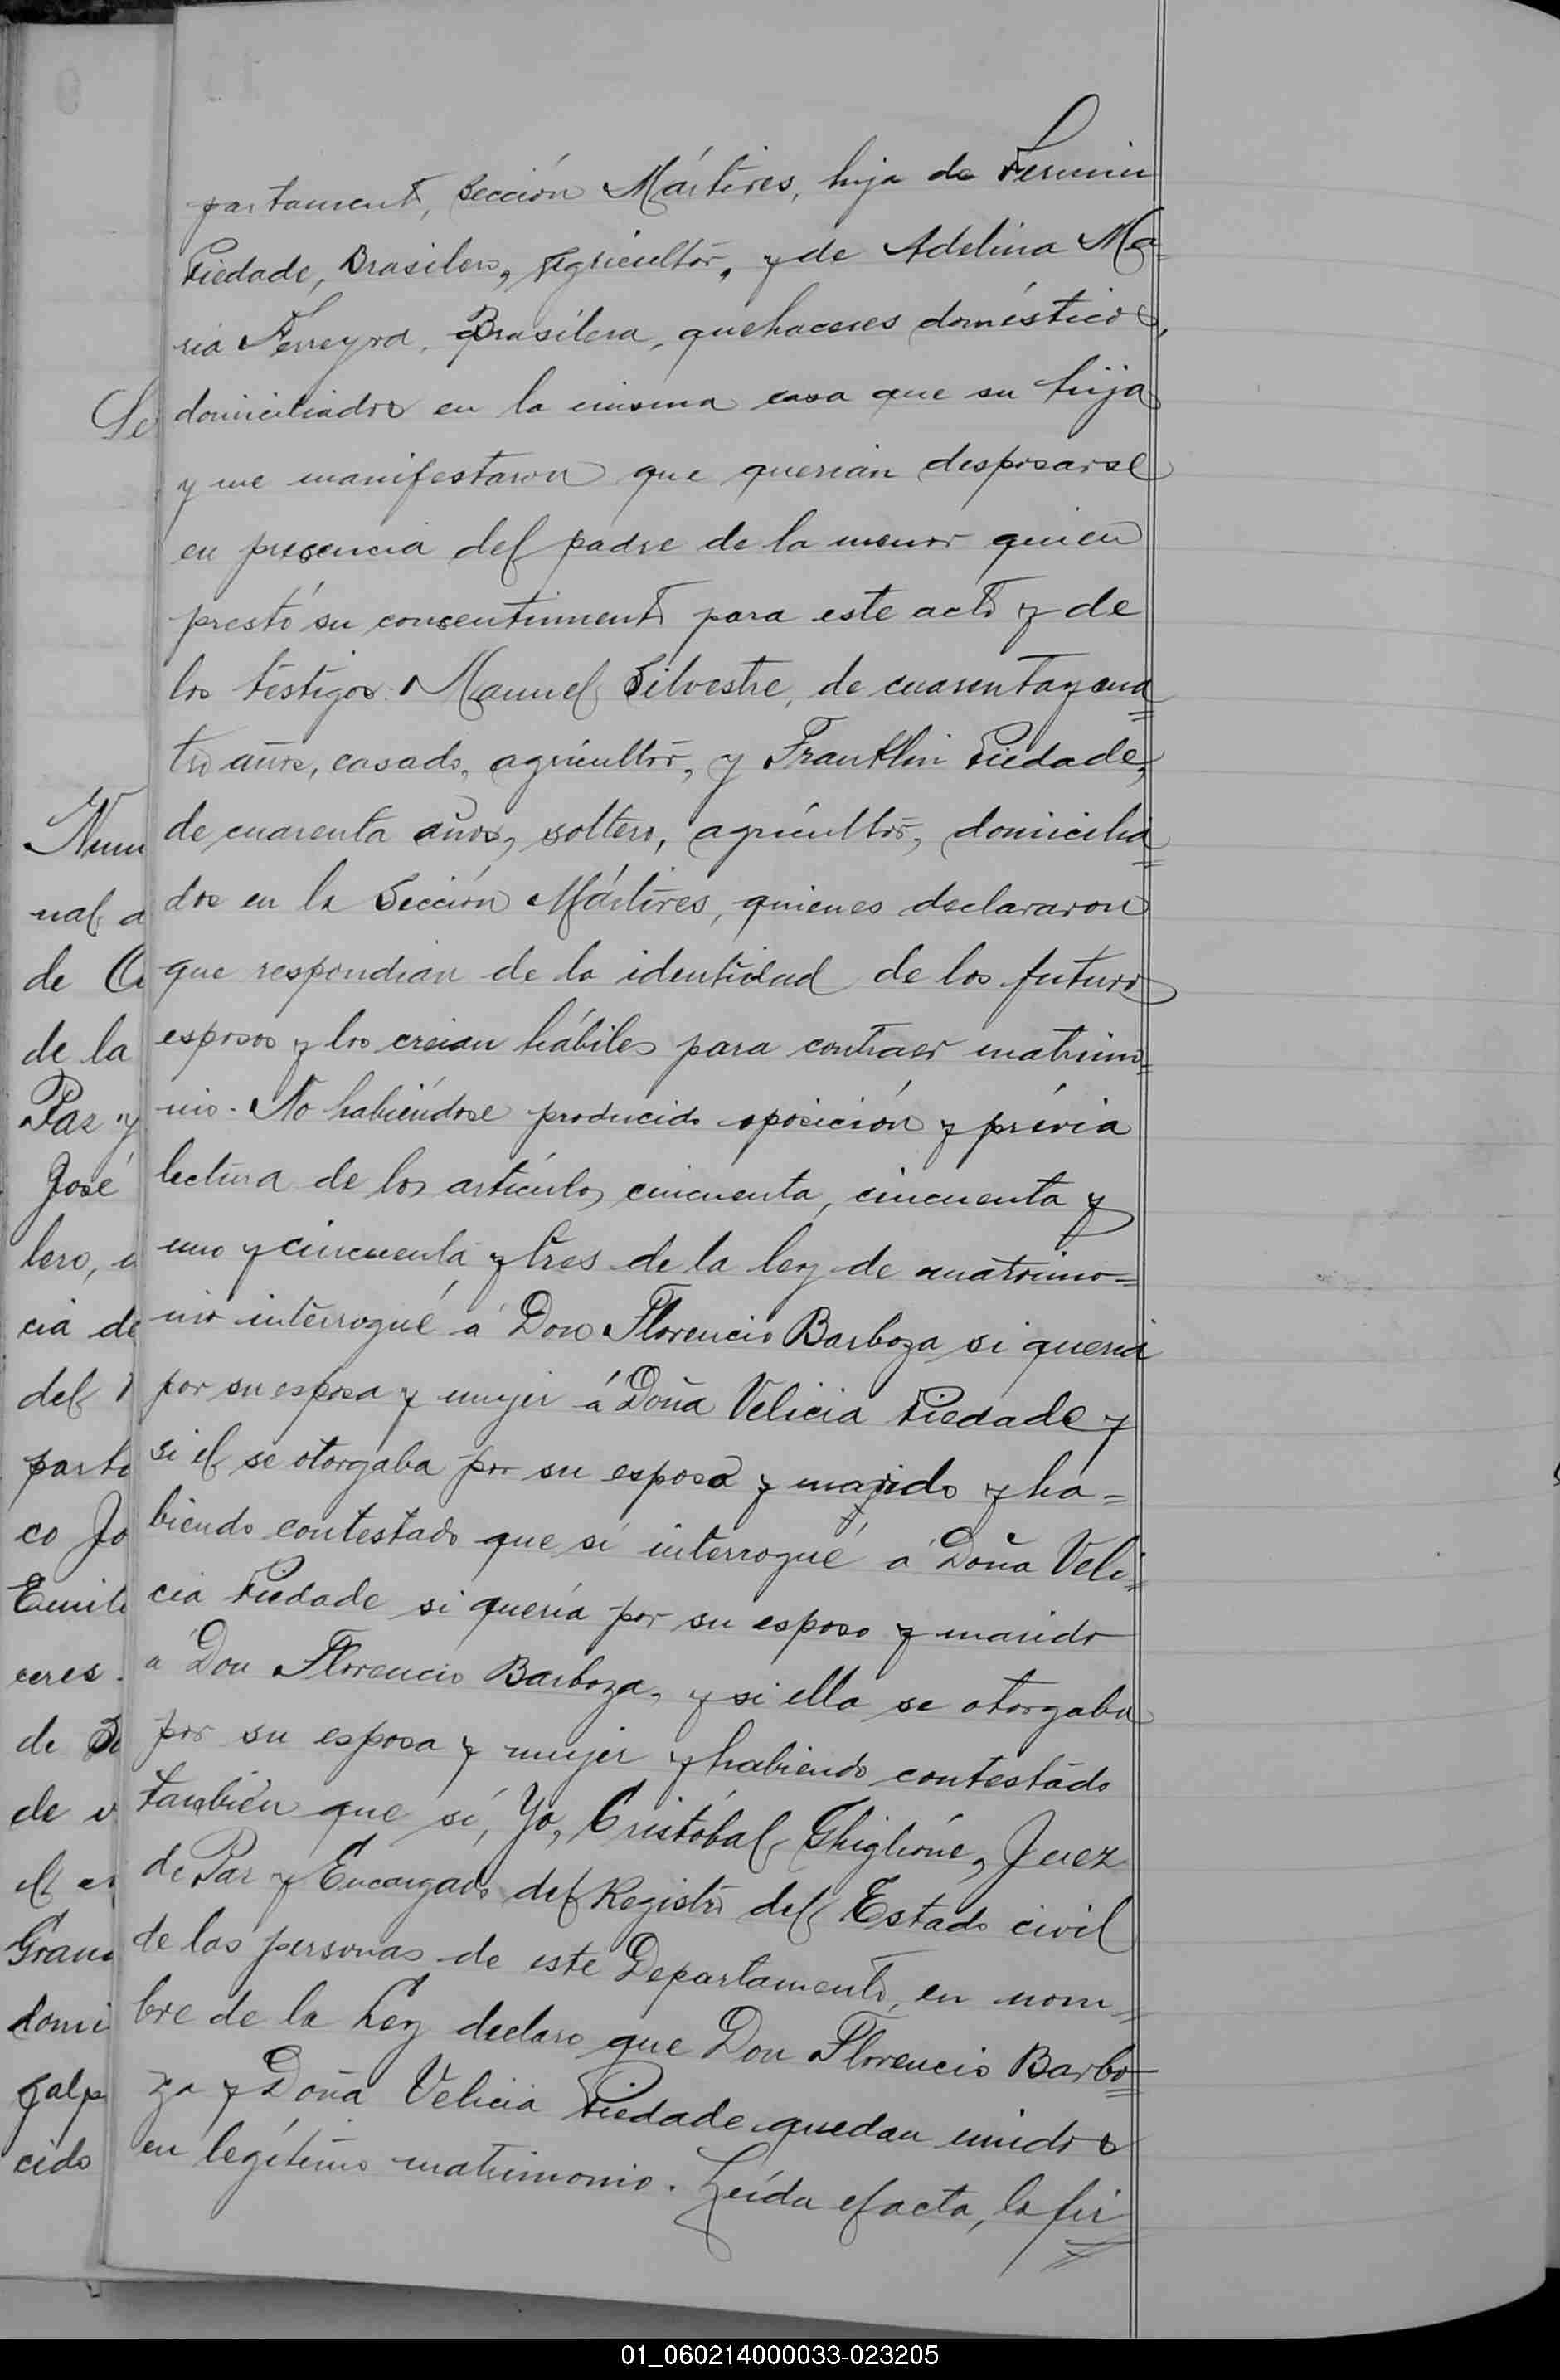 partamento, Sección Mártires, hija de Fermin
Piedade, Brasilero, Agricultor, y de Adelina Ma=
ria Ferreyra, Brasilera, quehaceres domésticos,
domiciliados en la misma casa que su hija
y me manifestaron que querian desposarse
en presencia del padre de la menor quien
prestó su consentimento para este acto y de
los testigos: Manuel Silvestre, de cuarenta y cua=
tro años, casado, agricultor, y Franklin Piedade,
de cuarenta años, soltero, agricultor, domicilia=
dos en la Sección Mártires, quienes declararon
que respondian de la identidad de los futuros
esposos y los creian hábiles para contraer matrimo=
nio. No habiéndose producido oposición y prévia
lectura de los artículos cincuenta, cincuenta y
uno y cincuenta y tres de la ley de matrimo=
nio interrogué á Don Florencio Barboza si queria
por su esposa y mujer á Doña Velicia Piedade y
si el se otorgaba por su esposo y marido y ha=
biendo contestado que sí interrogué á Doña Veli=
cia Piedade si quería por su esposo y marido
á Don Florencio Barboza, y si ella se otorgaba
por su esposa y mujer y habiendo contestado
también que sí, Yo, Cristóbal Ghiglione, Juez
de Paz y Encargado del Registro del Estado civil
de las personas de este Departamento, en nom=
bre de la Ley declaro que Don Florencio Barbo=
za y Doña Velicia Piedade quedan unidos
en legítimo matrimonio. Leída el acta, la fir=
Se
Num
nal a
de
de la
Paz y
José
lero,
cia de
del
parta
co Jo
Emili
ceres
de
de
el
Gran
domi
galp
cido
01_060214000033-023205